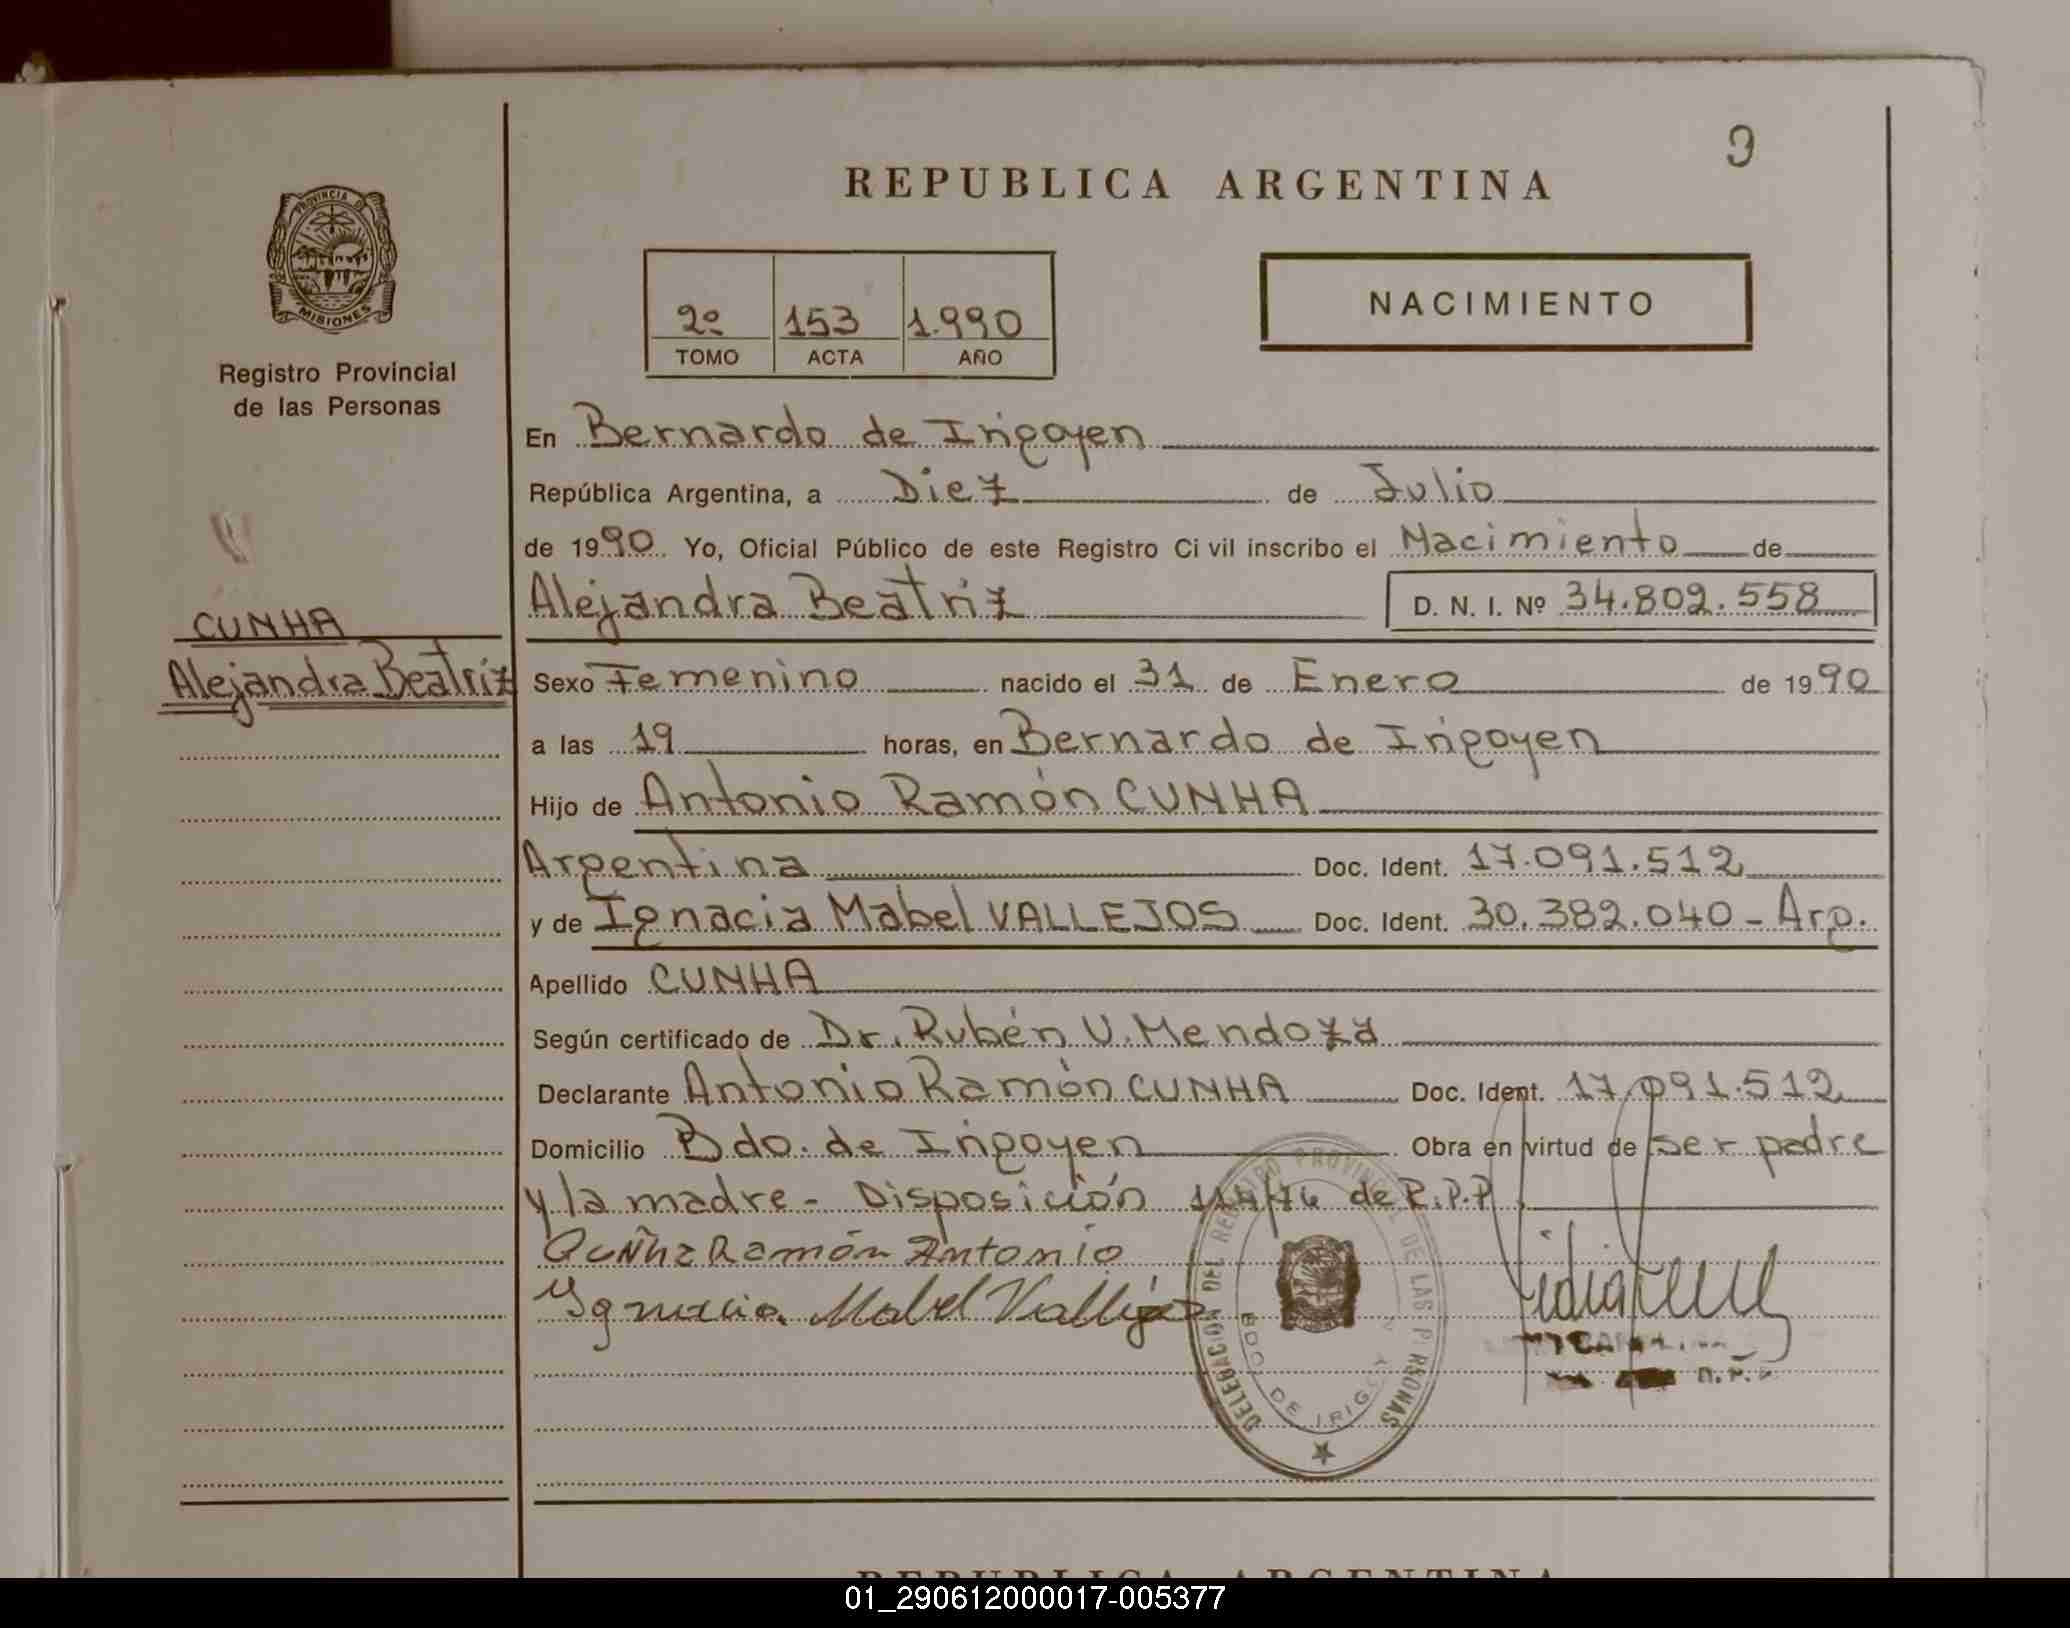 3
REPUBLICA ARGENTINA
PROVINCIA DE
MISIONES
Registro Provincial
de las Personas
2º 153 1.990
TOMO ACTA AÑO
NACIMIENTO
En Bernardo de Irigoyen
República Argentina, a Diez de Julio
de 1990 Yo, Oficial Público de este Registro Civil inscribo el Nacimiento de
Alejandra Beatriz D. N. I. Nº 34.802.558
CUNHA
Alejandra Beatriz
Sexo Femenino nacido el 31 de Enero de 1990
a las 19 horas, en Bernardo de Irigoyen
Hijo de Antonio Ramón CUNHA
Argentina Doc. Ident. 17.091.512
y de Ignacia Mabel VALLEJOS Doc. Ident. 30.382.040 - Arg.
Apellido CUNHA
Según certificado de Dr. Rubén U. Mendoza
Declarante Antonio Ramón CUNHA Doc. Ident. 17.091.512
Domicilio Bdo. de Irigoyen Obra en virtud de ser padre
y la madre - Disposición 114/76 de R.P.P.
Cuñha Ramón Antonio
Ygnacia Mabel Vallejos
DELEGACION DEL REGISTRO PROVINCIAL DE LAS PERSONAS
BDO. DE IRIGOYEN
REPUBLICA ARGENTINA
01_290612000017-005377